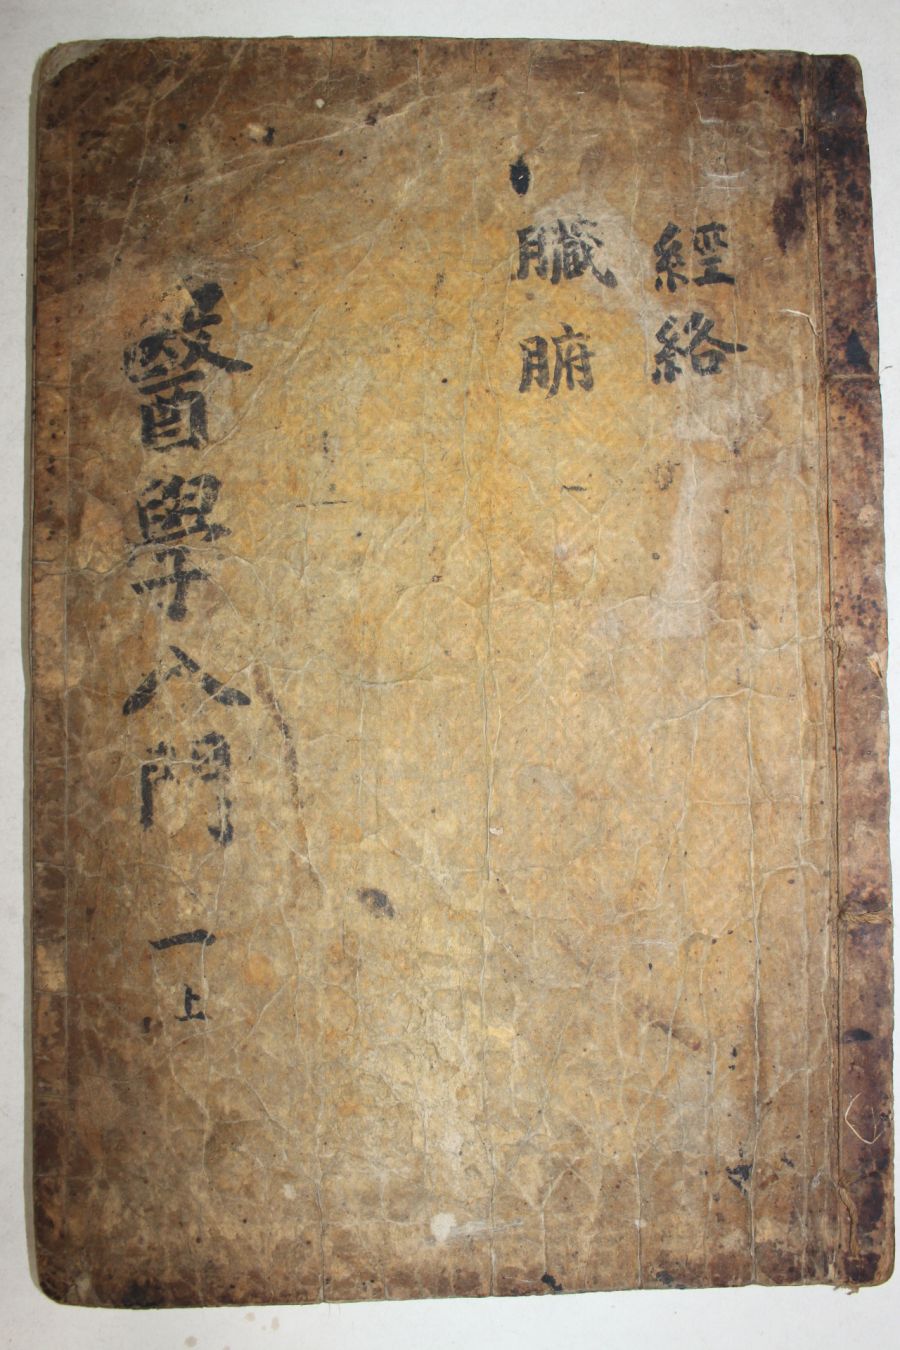 經絡
臟腑
醫學入門 一上